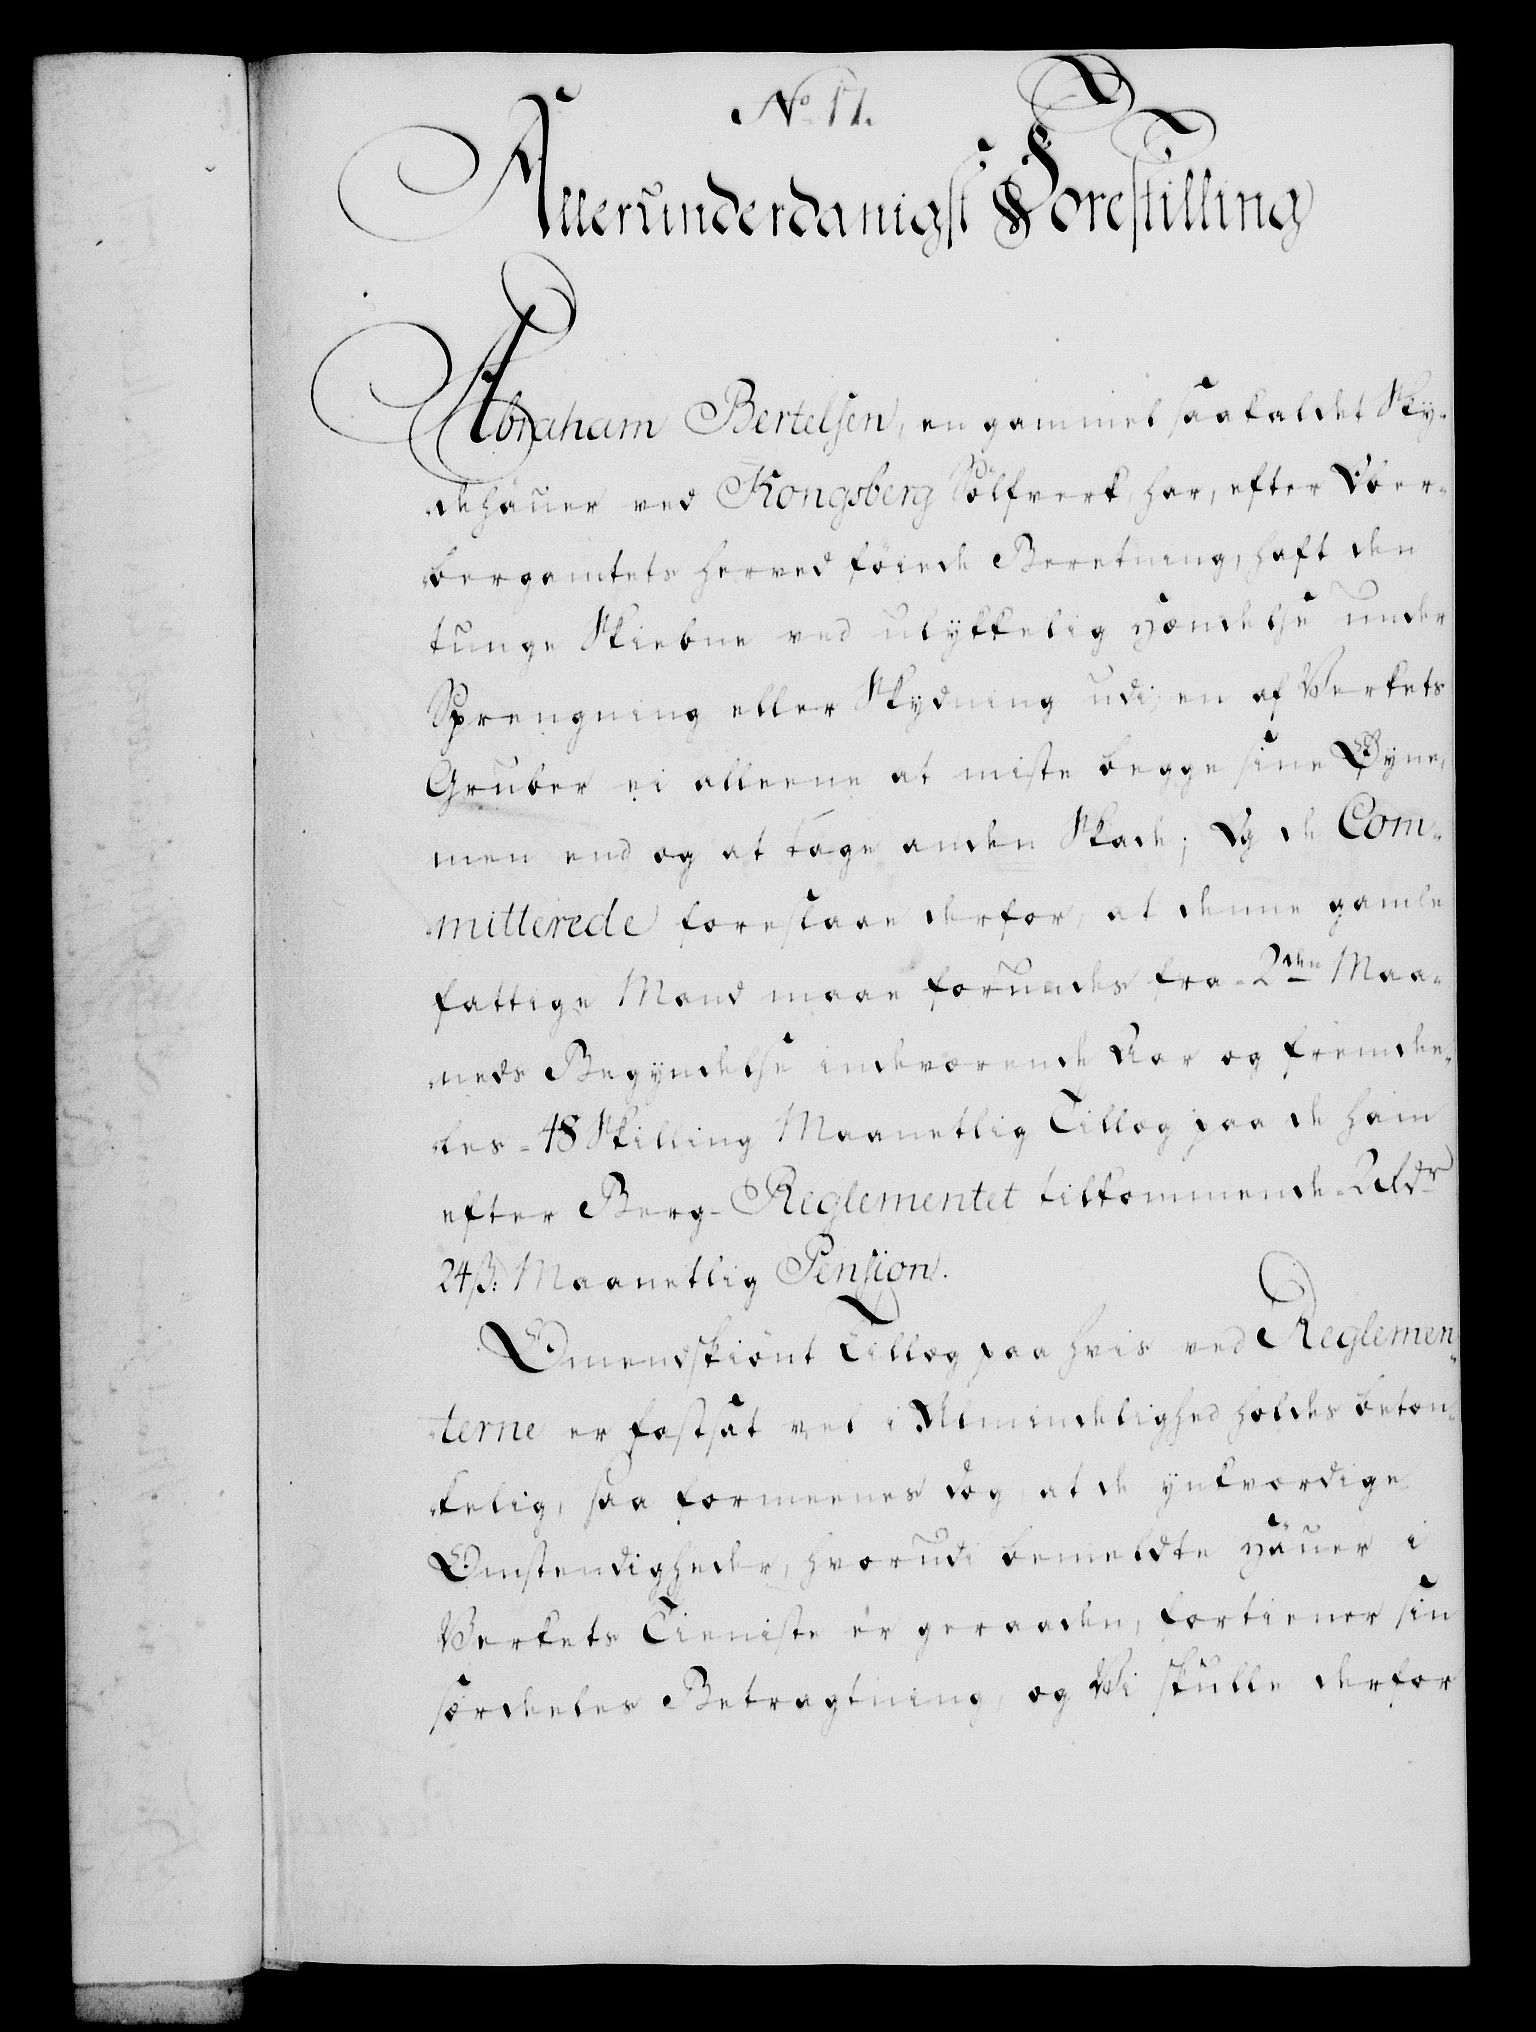 No 17.
Allerunderdanigst Forestilling
Abraham Bertelsen, en gammel saakaldet Sky-
dehäuer ved Kongsberg Sølfverk, har, efter Ober-
bergamtets herved föiede Beretning, haft den
tunge Skiebne ved ulykkelig Hændelse under
Sprengning eller Skydning udi en af Verkets
Gruber ei alleene at miste begge sine Øyne,
men end og at tage anden Skade; Og de Com-
mitterede foreslaae derfor, at denne gamle
fattige Mand maae forundes fra 2den Maa-
neds Begyndelse indeværende Aar og fremde-
les 48 Skilling Maanetlig Tillæg paa de ham
efter Berg-Reglementet tilkommende 2 Rdr
24 ß. Maanetlig Pension.
Omendskiønt Tillæg paa hvis ved Reglemen-
terne er fastsat vel i Almindelighed holdes betæn-
kelig, saa formeenes dog, at de ynkværdige
Omstendigheder, hvorudi bemeldte Häuer i
Verkets Tieniste er geraaden, fortiener sin
særdeles Betragtning, og Vi skulle derfor